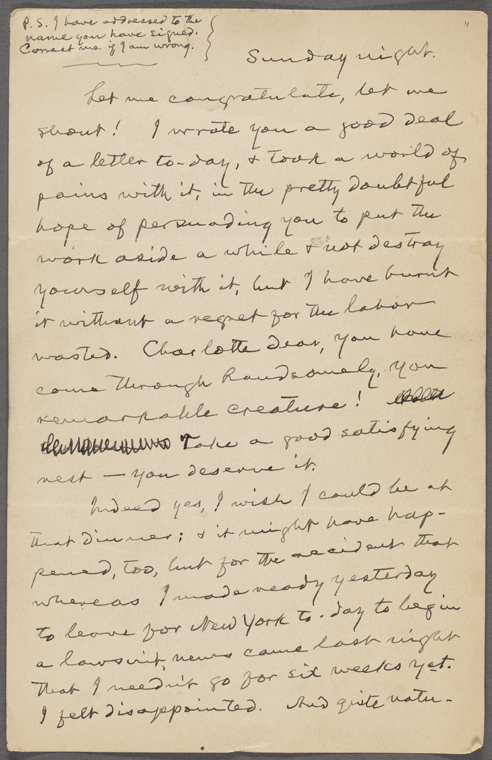 P.S. I have addressed to the
name you have signed.
Correct me if I am wrong.
Sunday night.
Let me congratulate, let me
shout! I wrote you a good deal
of a letter to-day, & took a world of
pains with it, in the pretty doubtful
hope of persuading you to put the
work aside a while & not destroy
yourself with it, but I have burnt
it without a regret for the labor
wasted. Charlotte dear, you have
come through handsomely, you
remarkable creature!
Take a good satisfying
rest — you deserve it.
Indeed yes, I wish I could be at
that dinner; & it might have hap-
pened, too, but for the accident that
whereas I made ready yesterday
to leave for New York to-day to begin
a lawsuit, news came last night
that I needn't go for six weeks yet.
I felt disappointed. And quite natu-